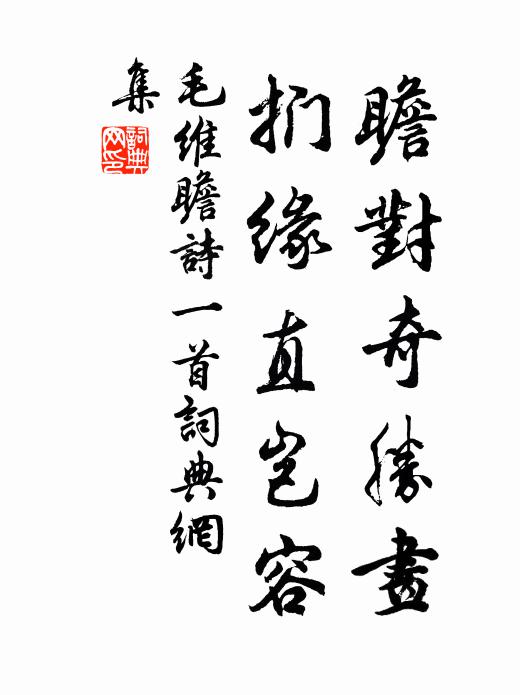 瞻對奇勝畫
捫緣直豈容
毛維瞻詩一首詞典網
集
詞典網印